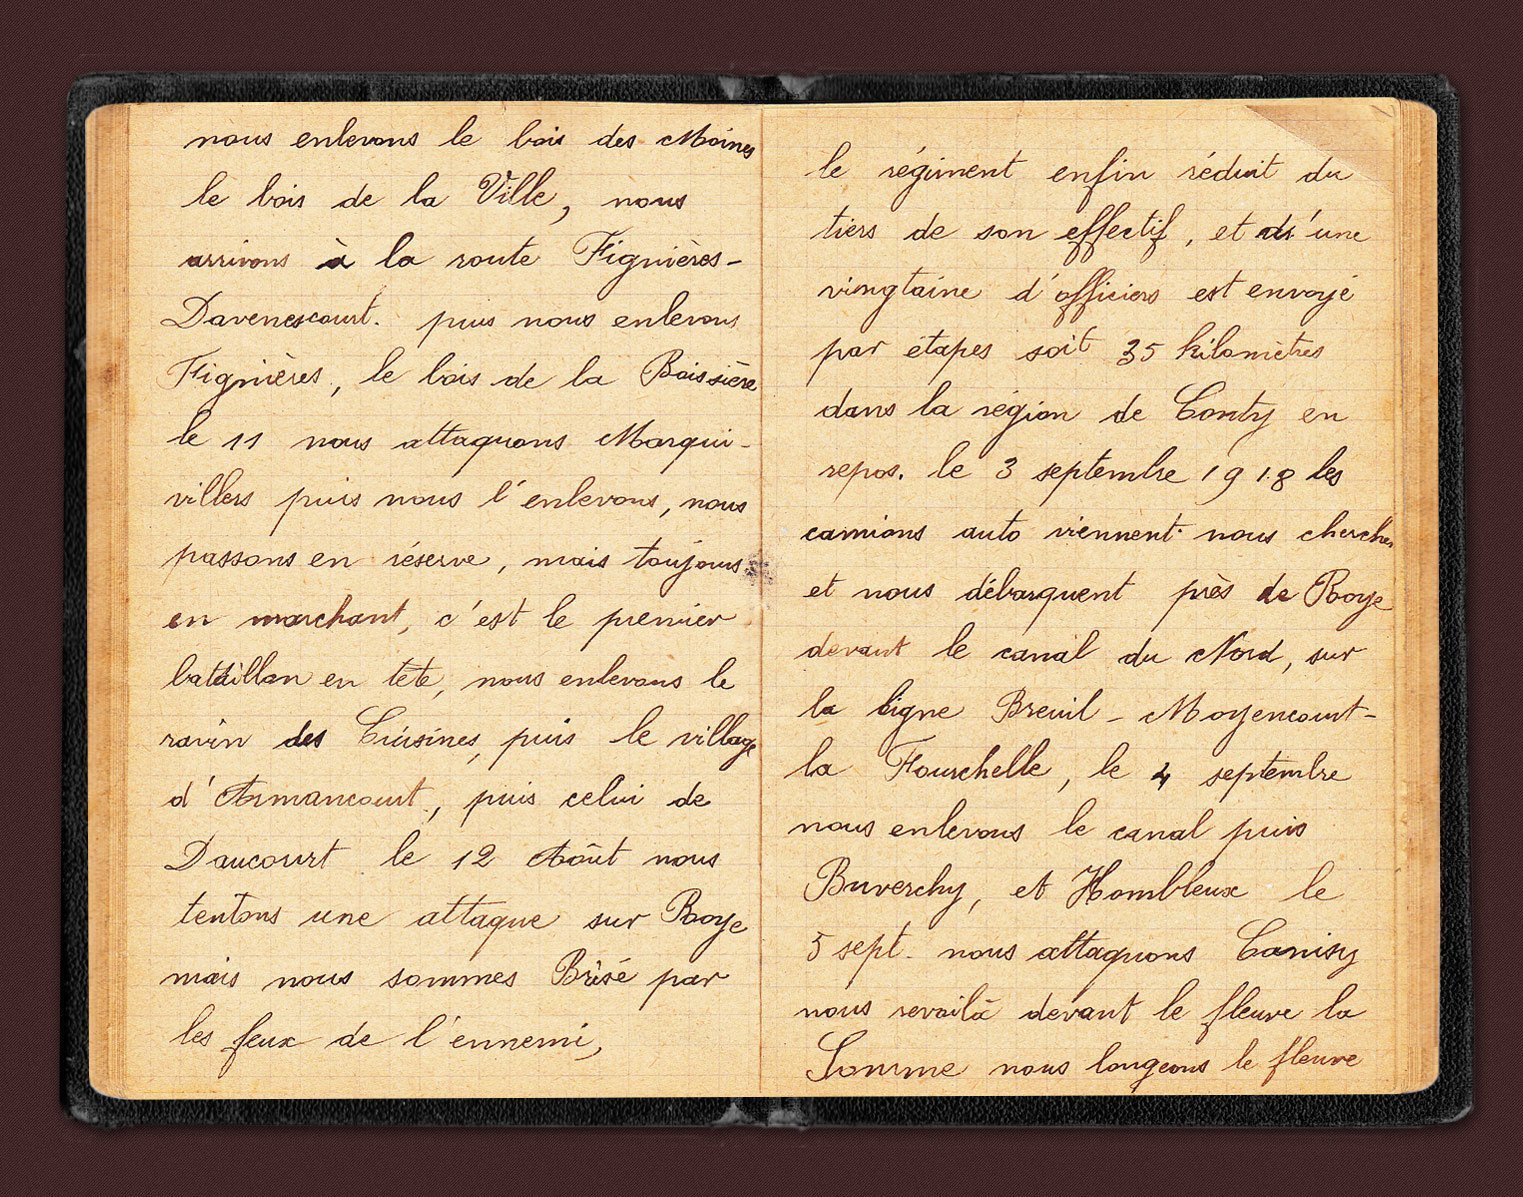 nous enlevons le bois des Moines
le bois de la Ville, nous
arrivons à la route Fignières-
Davenescourt. puis nous enlevons
Fignières, le bois de la Boissière
le 11 nous attaquons Marqui-
villers puis nous l'enlevons, nous
passons en réserve, mais toujours
en marchant, c'est le premier
bataillon en tête, nous enlevons le
ravin des Cuisines, puis le village
d'Armancourt, puis celui de
Daucourt le 12 Aôut nous
tentons une attaque sur Roye
mais nous sommes Brisé par
les feux de l'ennemi,
le régiment enfin réduit du
tiers de son effectif, et d'une
vingtaine d'officiers est envoyé
par étapes soit 35 kilomètres
dans la région de Conty en
repos. le 3 septembre 1918 les
camions auto viennent nous chercher
et nous débarquent près de Roye
devant le canal du Nord, sur
la ligne Breuil - Moyencourt -
la Fourchelle, le 4 septembre
nous enlevons le canal puis
Buverchy, et Hombleux le
5 sept. nous attaquons Canisy
nous revoilà devant le fleuve la
Somme nous longeons le fleuve